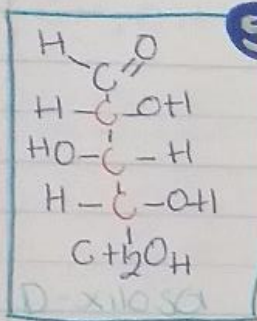 H O
C
H-C-OH
HO-C-H
H-C-OH
CH2OH
D-xilosa